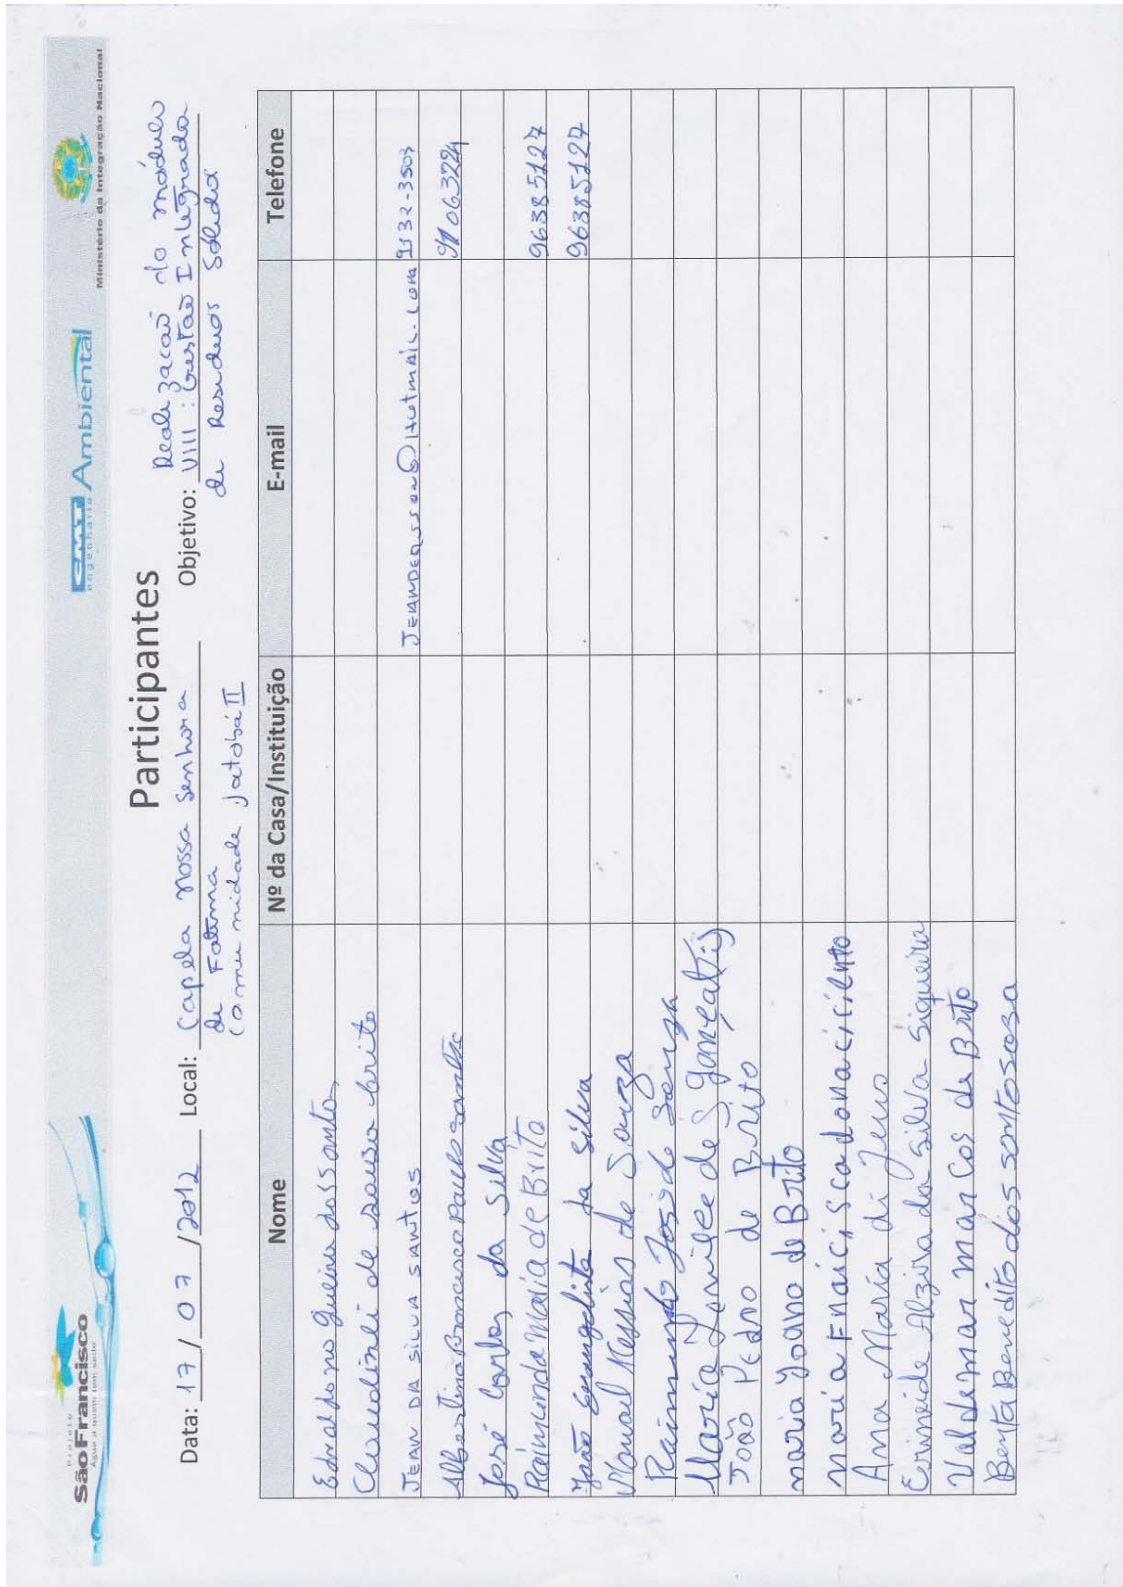 Projeto
São Francisco
Água a quem tem sede
CMT Ambiental
Engenharia
Ministério da Integração Nacional
Participantes
Data: 17 / 07 / 2012 Local: Capela Nossa Senhora Objetivo: Realizacaõ do módulo
de Fatima VIII : Gestaõ Integrada
Comunidade Jatobá II de Residuos Sólidos
Nome Nº da Casa/Instituição E-mail Telefone
Edvaldo no dos santos
Claudinei de Sousa brito
JEAN DA SILVA SANTOS @HOTMAIL.COM 9132-3503
Albertina Francisca Paulo
José Carlos da Silva
Raimunda Maria de Brito 96385127
João Evangelista da Silva 96385127
Manoel Messias de Souza
Raimundo José de Souza
Maria de S Gonçalvis
João Pedro de Brito
maria Joano de Brito
maria do nacicinto
Ana Maria di Jesus
Erineide Alzira da Silva Siqueira
Valdemar marcos de Brito
Benta Benedito dos santos